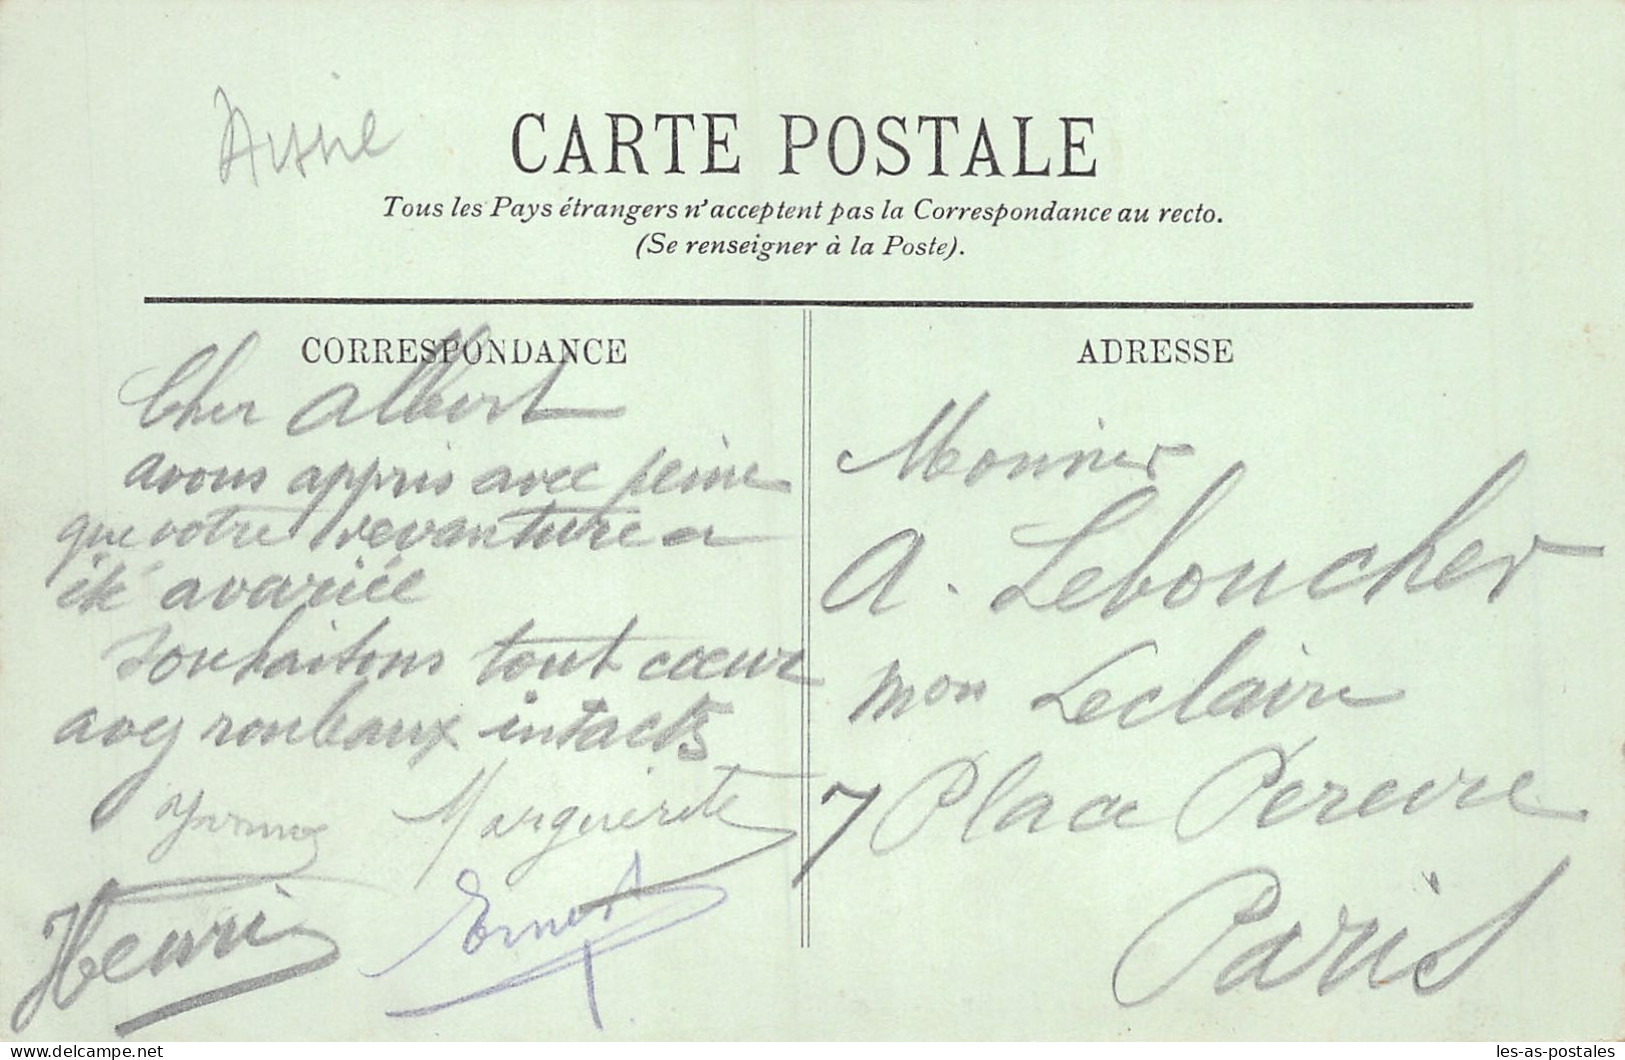 Aisne
CARTE POSTALE
Tous les Pays étrangers n'acceptent pas la Correspondance au recto.
(Se renseigner à la Poste).
CORRESPONDANCE
Cher Albert
avons appris avec peine
que votre devanture a
été avariée
souhaitons tout cœur
avez rouleaux intacts
Yvonne Marguerite
Henri Ernest
ADRESSE
Monsieur
A. Leboucher
mon Leclaire
7 Place Pereire
Paris
delcampe.net
les-as-postales